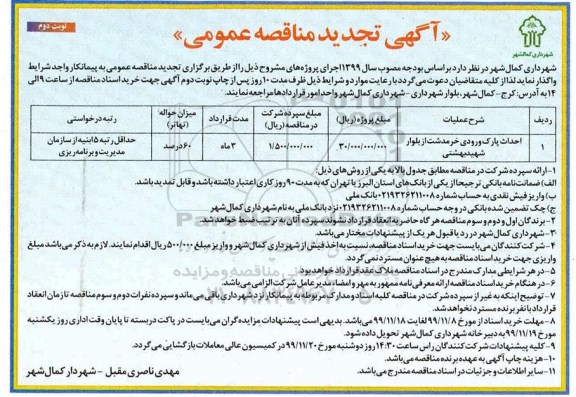 نوبت دوم
«آگهی تجدید مناقصه عمومی»
شهرداری کمالشهر
شهرداری کمال‌شهر در نظر دارد بر اساس بودجه مصوب سال ۱۳۹۹ اجرای پروژه‌های مشروح ذیل را از طریق برگزاری تجدید مناقصه عمومی به پیمانکار واجد شرایط
واگذار نماید لذا از کلیه متقاضیان دعوت می‌گردد با رعایت موارد و شرایط ذیل ظرف مدت ۱۰ روز پس از چاپ نوبت دوم آگهی جهت خرید اسناد مناقصه از ساعت ۹ الی
۱۴ به آدرس: کرج - کمال‌شهر، بلوار شهرداری - شهرداری کمال‌شهر واحد امور قراردادها مراجعه نمایند.
ردیف | شرح عملیات | مبلغ پروژه (ریال) | مبلغ سپرده شرکت در مناقصه (ریال) | مدت قرارداد | میزان حواله (تهاتر) | رتبه درخواستی
۱ | احداث پارک ورودی خرمدشت از بلوار شهیدبهشتی | ۳۰/۰۰۰/۰۰۰/۰۰۰ | ۱/۵۰۰/۰۰۰/۰۰۰ | ۳ ماه | ۶۰ درصد | حداقل رتبه ۵ ابنیه از سازمان مدیریت و برنامه‌ریزی
۱- ارائه سپرده شرکت در مناقصه مطابق جدول بالا به یکی از روش‌های ذیل:
الف) ضمانت‌نامه بانکی ترجیحا از یکی از بانک‌های استان البرز یا تهران که به مدت ۹۰ روز کاری اعتبار داشته باشد و قابل تمدید باشد.
ب) واریز فیش نقدی به حساب شماره ۰۲۱۹۳۲۶۲۱۱۰۰۸ بانک ملی
ج) چک تضمین شده بانکی در وجه حساب شماره ۰۲۱۹۳۲۶۲۱۱۰۰۸ نزد بانک ملی به نام شهرداری کمال‌شهر
۲- برندگان اول و دوم و سوم مناقصه هرگاه حاضر به انعقاد قرارداد نشوند سپرده آنان به ترتیب ضبط خواهد شد.
۳- شهرداری کمال‌شهر در رد یا قبول هر یک از پیشنهادات مختار می‌باشد.
۴- شرکت کنندگان می‌بایست جهت خرید اسناد مناقصه، نسبت به اخذ فیش از شهرداری کمال‌شهر و واریز مبلغ ۵۰۰/۰۰۰ ریال اقدام نمایند. لازم به ذکر می‌باشد مبلغ
واریزی جهت خرید اسناد مناقصه به هیچ عنوان مسترد نمی‌گردد.
۵- در هر شرایطی مدارک مندرج در اسناد مناقصه ملاک عقد قرارداد خواهد بود.
۶- در هنگام خرید اسناد مناقصه ارائه معرفی‌نامه ممهور به مهر و امضاء مدیرعامل شرکت الزامی می‌باشد.
۷- توضیح اینکه به غیر از سپرده شرکت در مناقصه کلیه اسناد و مدارک مربوطه به پیمانکار نزد شهرداری باقی می‌ماند و سپرده نفرات دوم و سوم مناقصه تا زمان انعقاد
قرارداد با نفر برنده مسترد نخواهد شد.
۸- مهلت خرید اسناد از مورخ ۹۹/۱۱/۸ لغایت ۹۹/۱۱/۱۸ می‌باشد. بدیهی است پیشنهادات مزایده‌گران می‌بایست در پاکت دربسته تا پایان وقت اداری روز یکشنبه
مورخ ۹۹/۱۱/۱۹ به دبیرخانه شهرداری کمال‌شهر تحویل داده شود.
۹- کلیه پیشنهادات شرکت‌کنندگان راس ساعت ۱۴:۳۰ روز دوشنبه مورخ ۹۹/۱۱/۲۰ در کمیسیون عالی معاملات بازگشایی می‌گردد.
۱۰- هزینه چاپ آگهی به عهده برنده مناقصه می‌باشد.
۱۱- سایر اطلاعات و جزئیات در اسناد مناقصه مندرج می‌باشد.
مهدی ناصری مقبل - شهردار کمال‌شهر